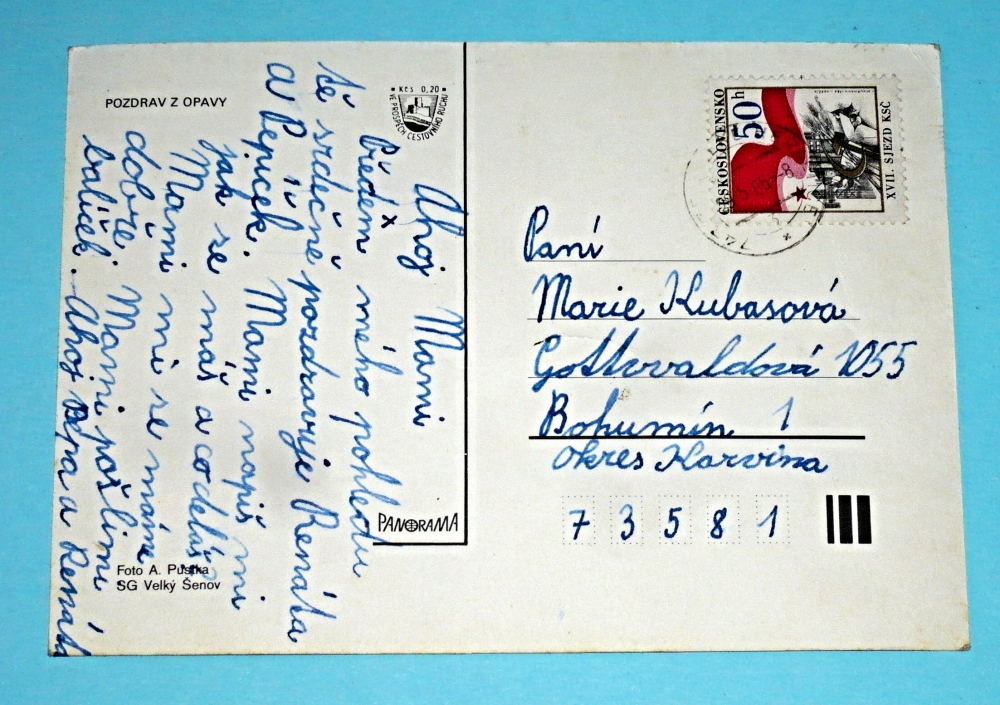 POZDRAV Z OPAVY
Kčs 0,20
VE PROSPĚCH CESTOVNÍHO RUCHU
Ahoj Mami
Předem mého pohledu
tě srdečně pozdravuje Renáta
a Pepíček. Mami napiš mi
jak se máš a co děláš
Mami mi se máme
dobře. Mami pošli mi
balíček. Ahoj Pepa a Renáta
PANORAMA
Foto A. Pustka
SG Velký Šenov
ČESKOSLOVENSKO
50 h
XVII. SJEZD KSČ
Paní
Marie Kubasová
Gottwaldová 1055
Bohumín 1
okres Karvina
7 3 5 8 1